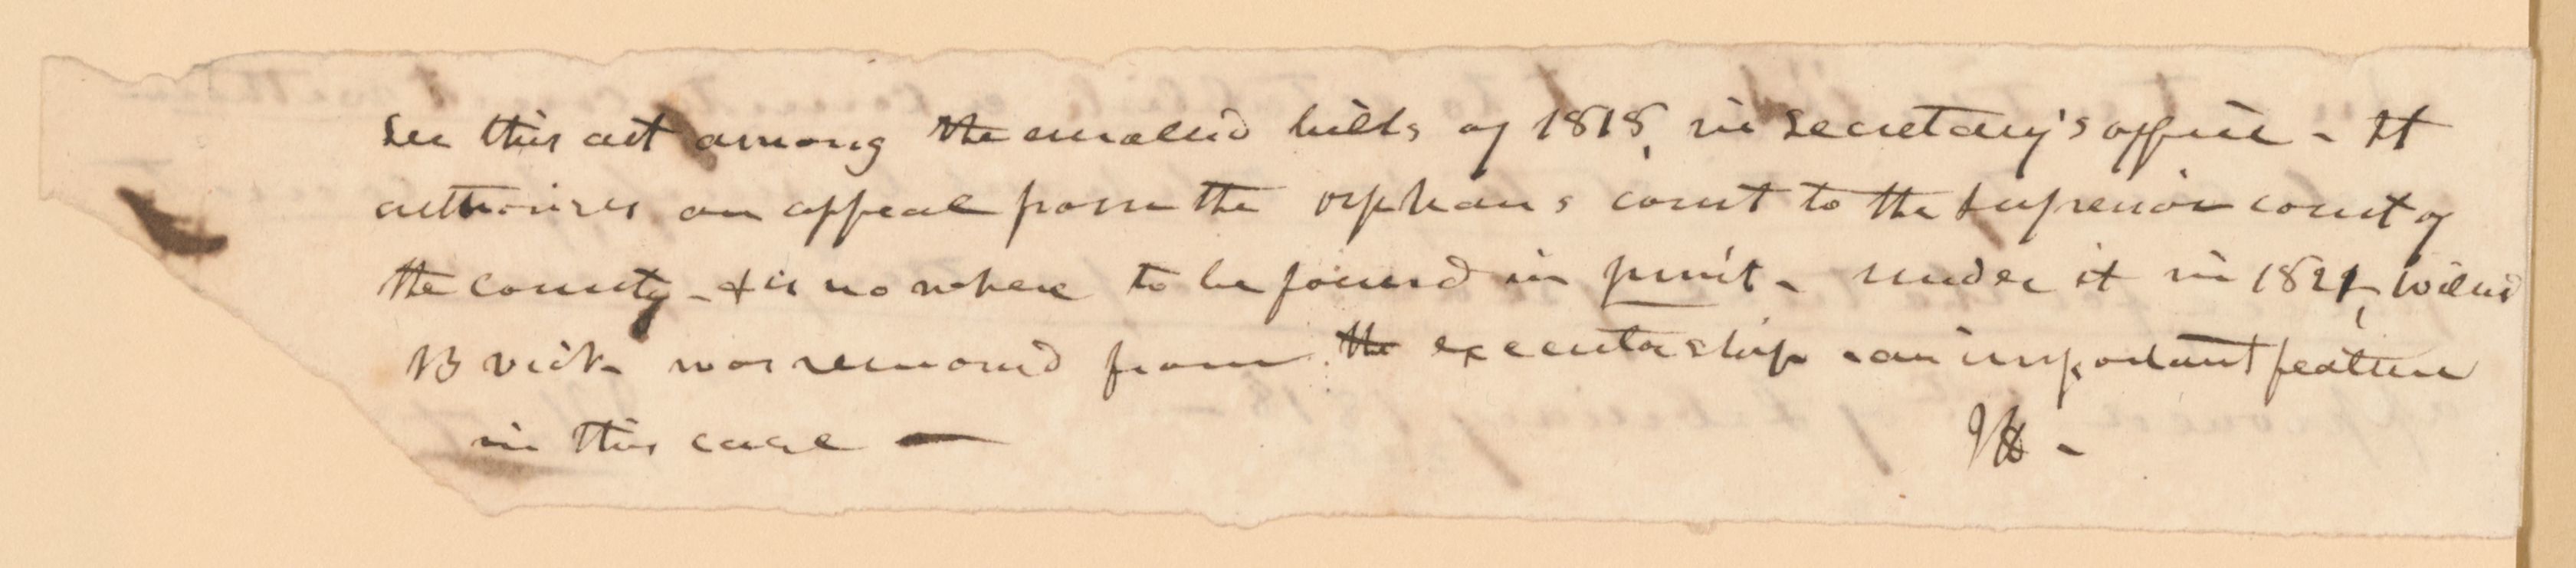 See this act among the enrolled bills of 1818, in Secretary's office - It
authorizes an appeal from the orphans court to the Superior court of
the county - & is no where to be found in print - under it in 1821, Willis
B Vick was removed from the executorship - an important feature
in this case —